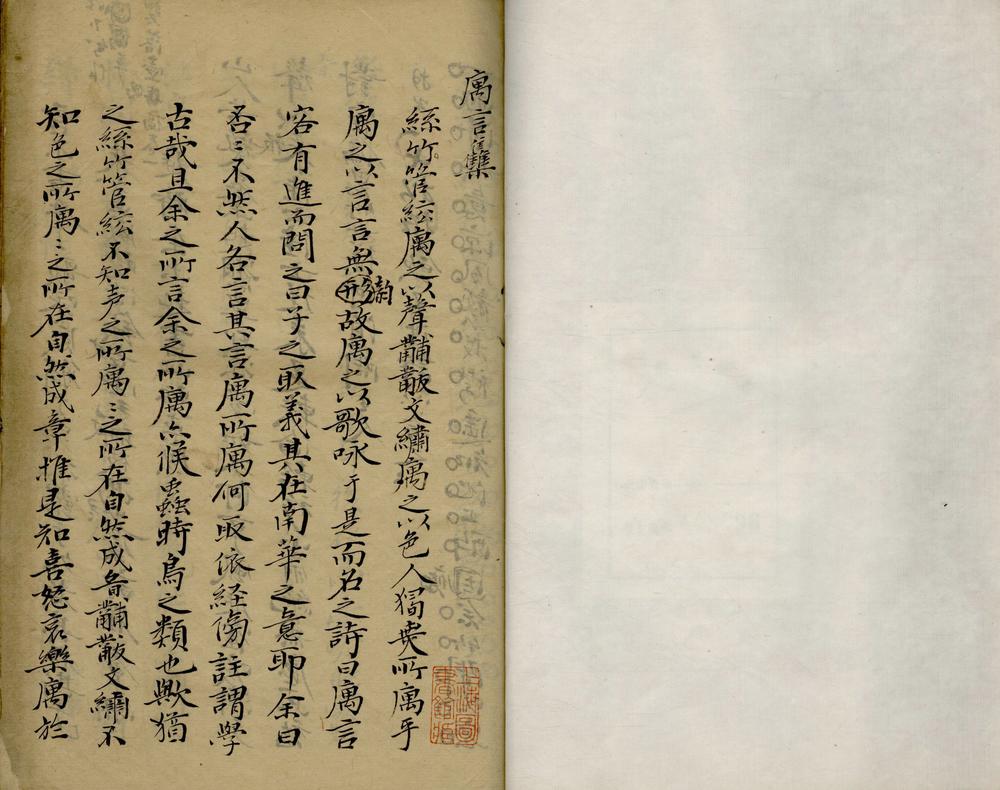 寓言集
絲竹管絃寓之以聲黼黻文繡寓之以色人獨無所寓乎
寓之以言言無形故寓之以歌咏于是而名之詩曰寓言
客有進而問之曰子之取義其在南華之意耶余曰
否〻不然人各言其言寓所寓何取依経傍註謂學
古哉且余之所言余之所寓亦候蟲時鳥之類也歟猶
之絲竹管絃不知声之所寓〻之所在自然成音黼黻文繡不
知色之所寓〻之所在自然成章推是知喜怒哀樂寓於
上海圖書館藏